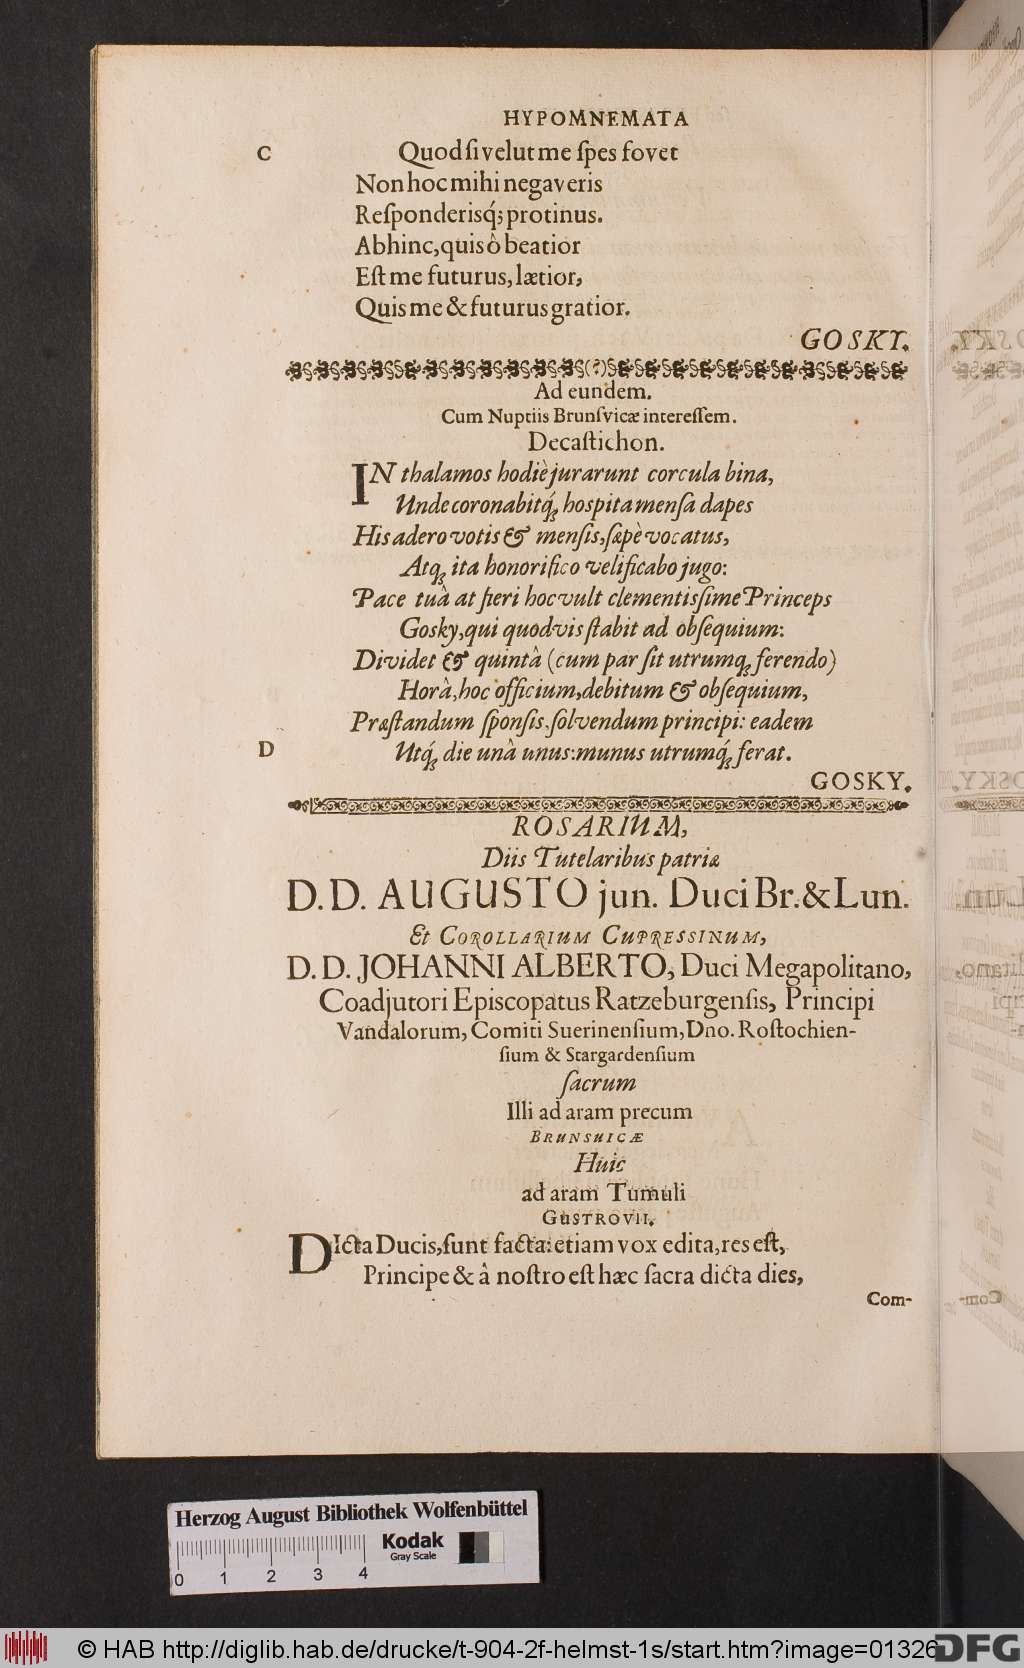 HYPOMNEMATA
C
Quod si velut me ſpes fovet
Non hoc mihi negaveris
Reſponderisq́; protinus.
Abhinc, quis ò beatior
Eſt me futurus, lætior,
Quis me & futurus gratior.
GOSKY.
Ad eundem.
Cum Nuptiis Brunſvicæ intereſſem.
Decaſtichon.
IN thalamos hodiè jurarunt corcula bina,
Unde coronabitq́; hoſpita menſa dapes
His adero votis & menſis, ſæpè vocatus,
Atq; ita honorifico velificabo jugo:
Pace tuâ at fieri hoc vult clementiſſime Princeps
Gosky, qui quodvis ſtabit ad obſequium:
Dividet & quintâ (cum par ſit utrumq; ferendo)
Horâ, hoc officium, debitum & obſequium,
Præſtandum ſponſis, ſolvendum principi: eadem
D
Utq́; die unâ unus: munus utrumq́; ferat.
GOSKY.
ROSARIUM,
Diis Tutelaribus patriæ
D. D. AUGUSTO jun. Duci Br. & Lun.
Et COROLLARIUM CUPRESSINUM,
D. D. JOHANNI ALBERTO, Duci Megapolitano,
Coadjutori Episcopatus Ratzeburgenſis, Principi
Vandalorum, Comiti Suerinenſium, Dno. Roſtochien-
ſium & Stargardenſium
ſacrum
Illi ad aram precum
BRUNSUICÆ
Huic
ad aram Tumuli
GUSTROVII.
DIcta Ducis, ſunt facta: etiam vox edita, res eſt,
Principe & â noſtro eſt hæc ſacra dicta dies,
Com-
Herzog August Bibliothek Wolfenbüttel
Kodak
Gray Scale
0 1 2 3 4
© HAB http://diglib.hab.de/drucke/t-904-2f-helmst-1s/start.htm?image=01326
DFG